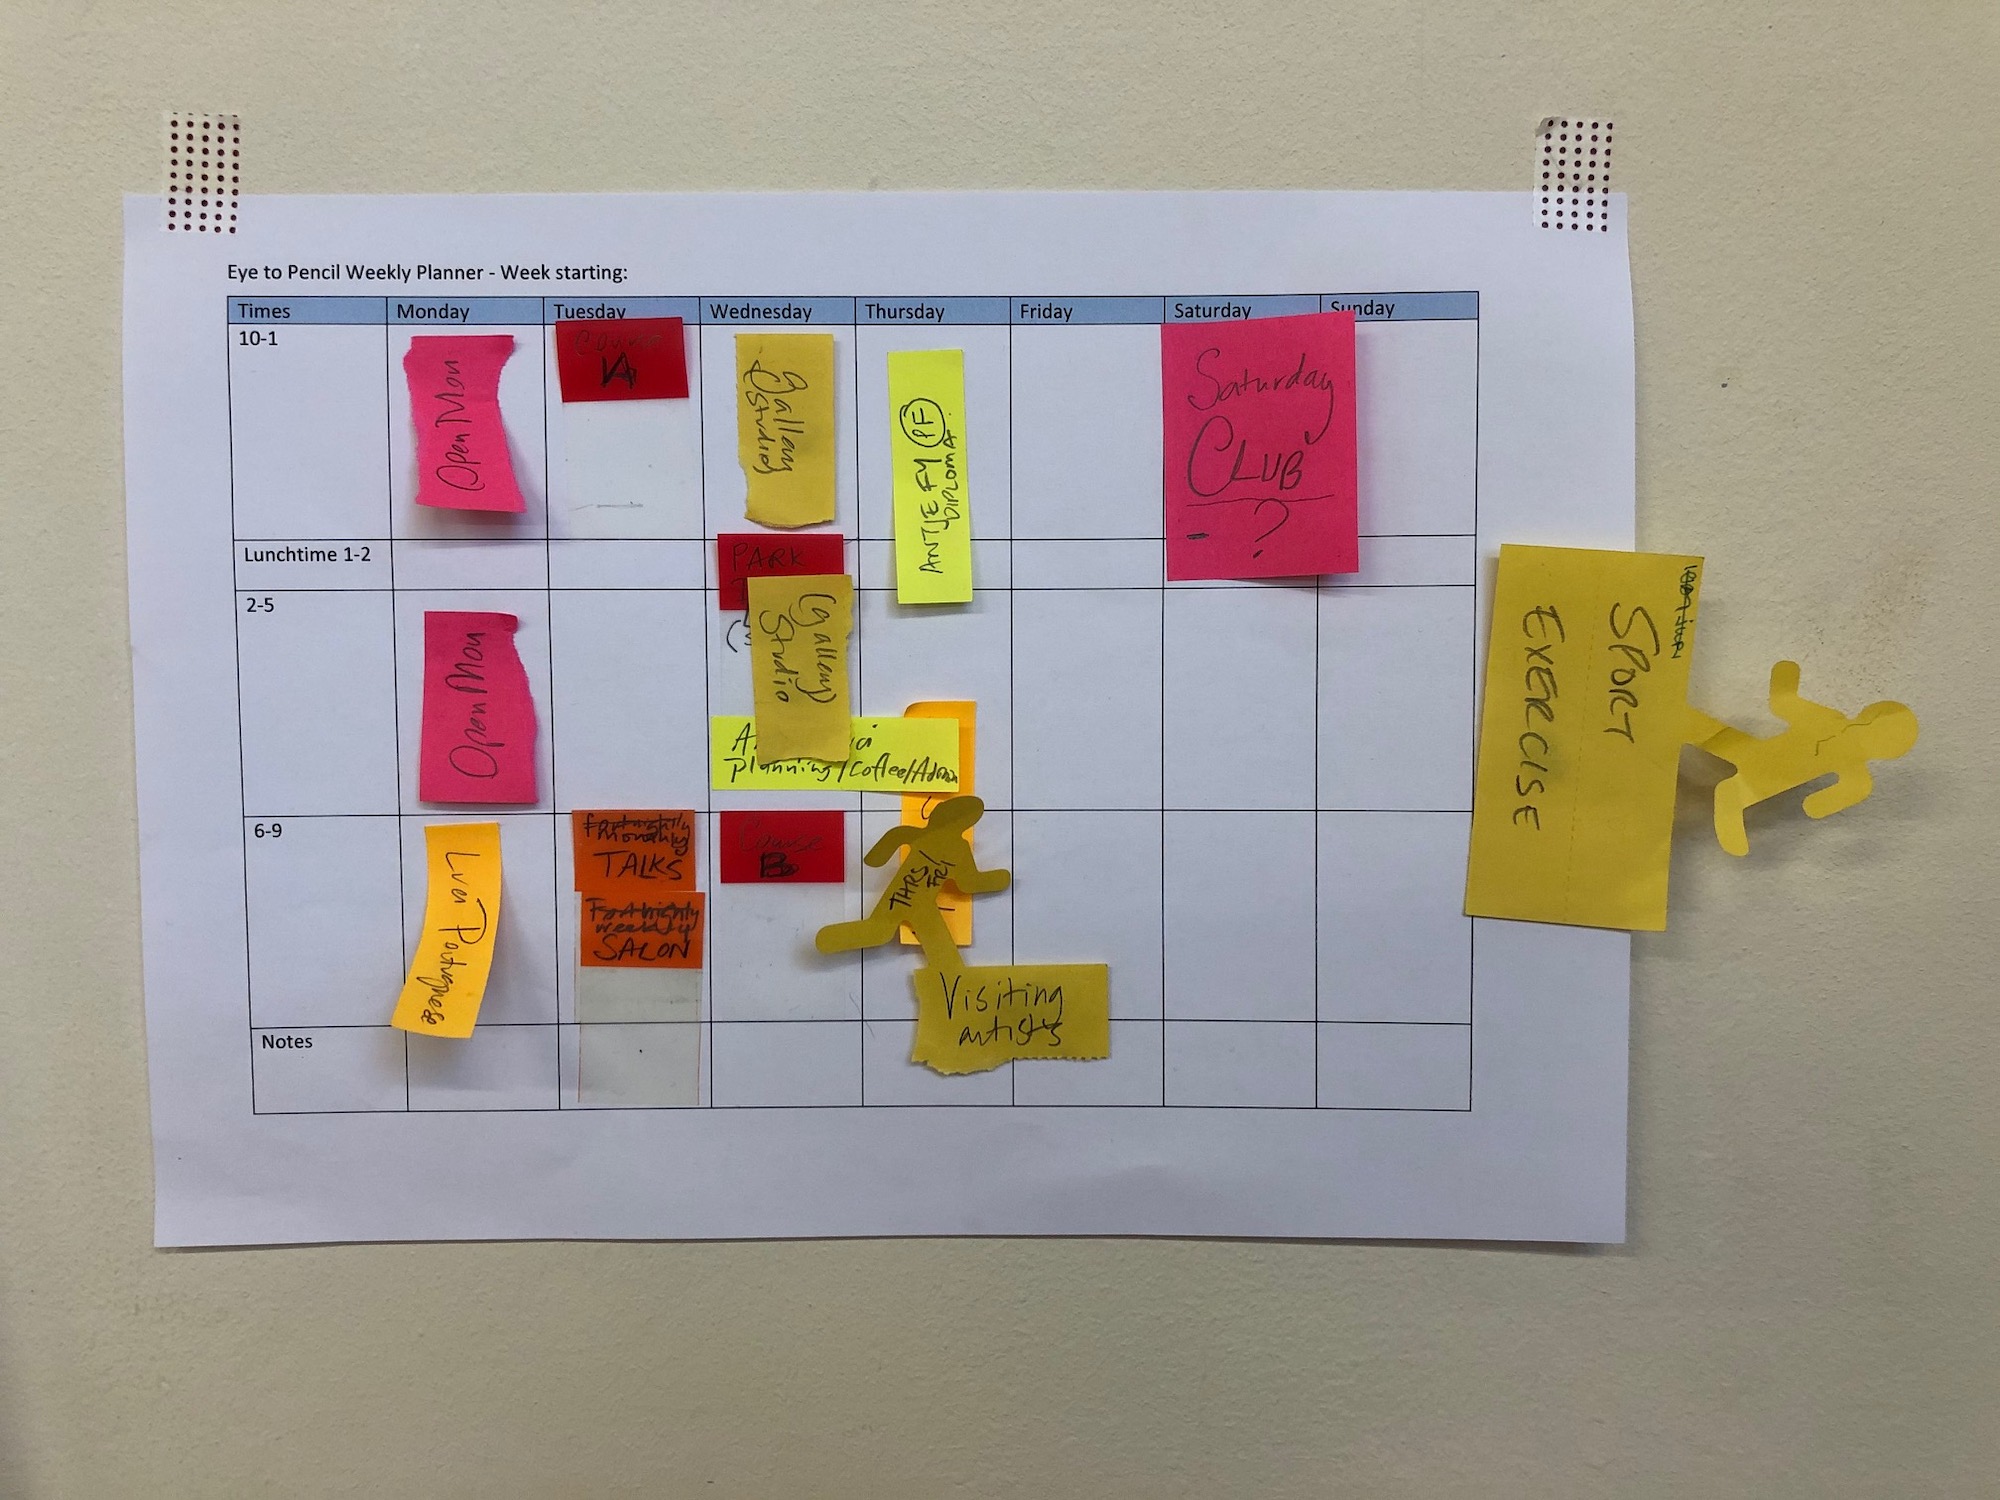 Eye to Pencil Weekly Planner - Week starting:
Times Monday Tuesday Wednesday Thursday Friday Saturday Sunday
10-1
Open Mon
Course
A
Gallery
Studio
ANTJE FY PF
DIPLOMA
Saturday
CLUB
- ?
Lunchtime 1-2
PARK
2-5
Open Mon
(gallery)
Studio
planning/Coffee/Admin
6-9
Portuguese
Fortnightly
Monthly
TALKS
Fortnightly
weekly
SALON
Course
B
THRS/
FRI
Visiting
artists
Notes
SPORT
EXERCISE